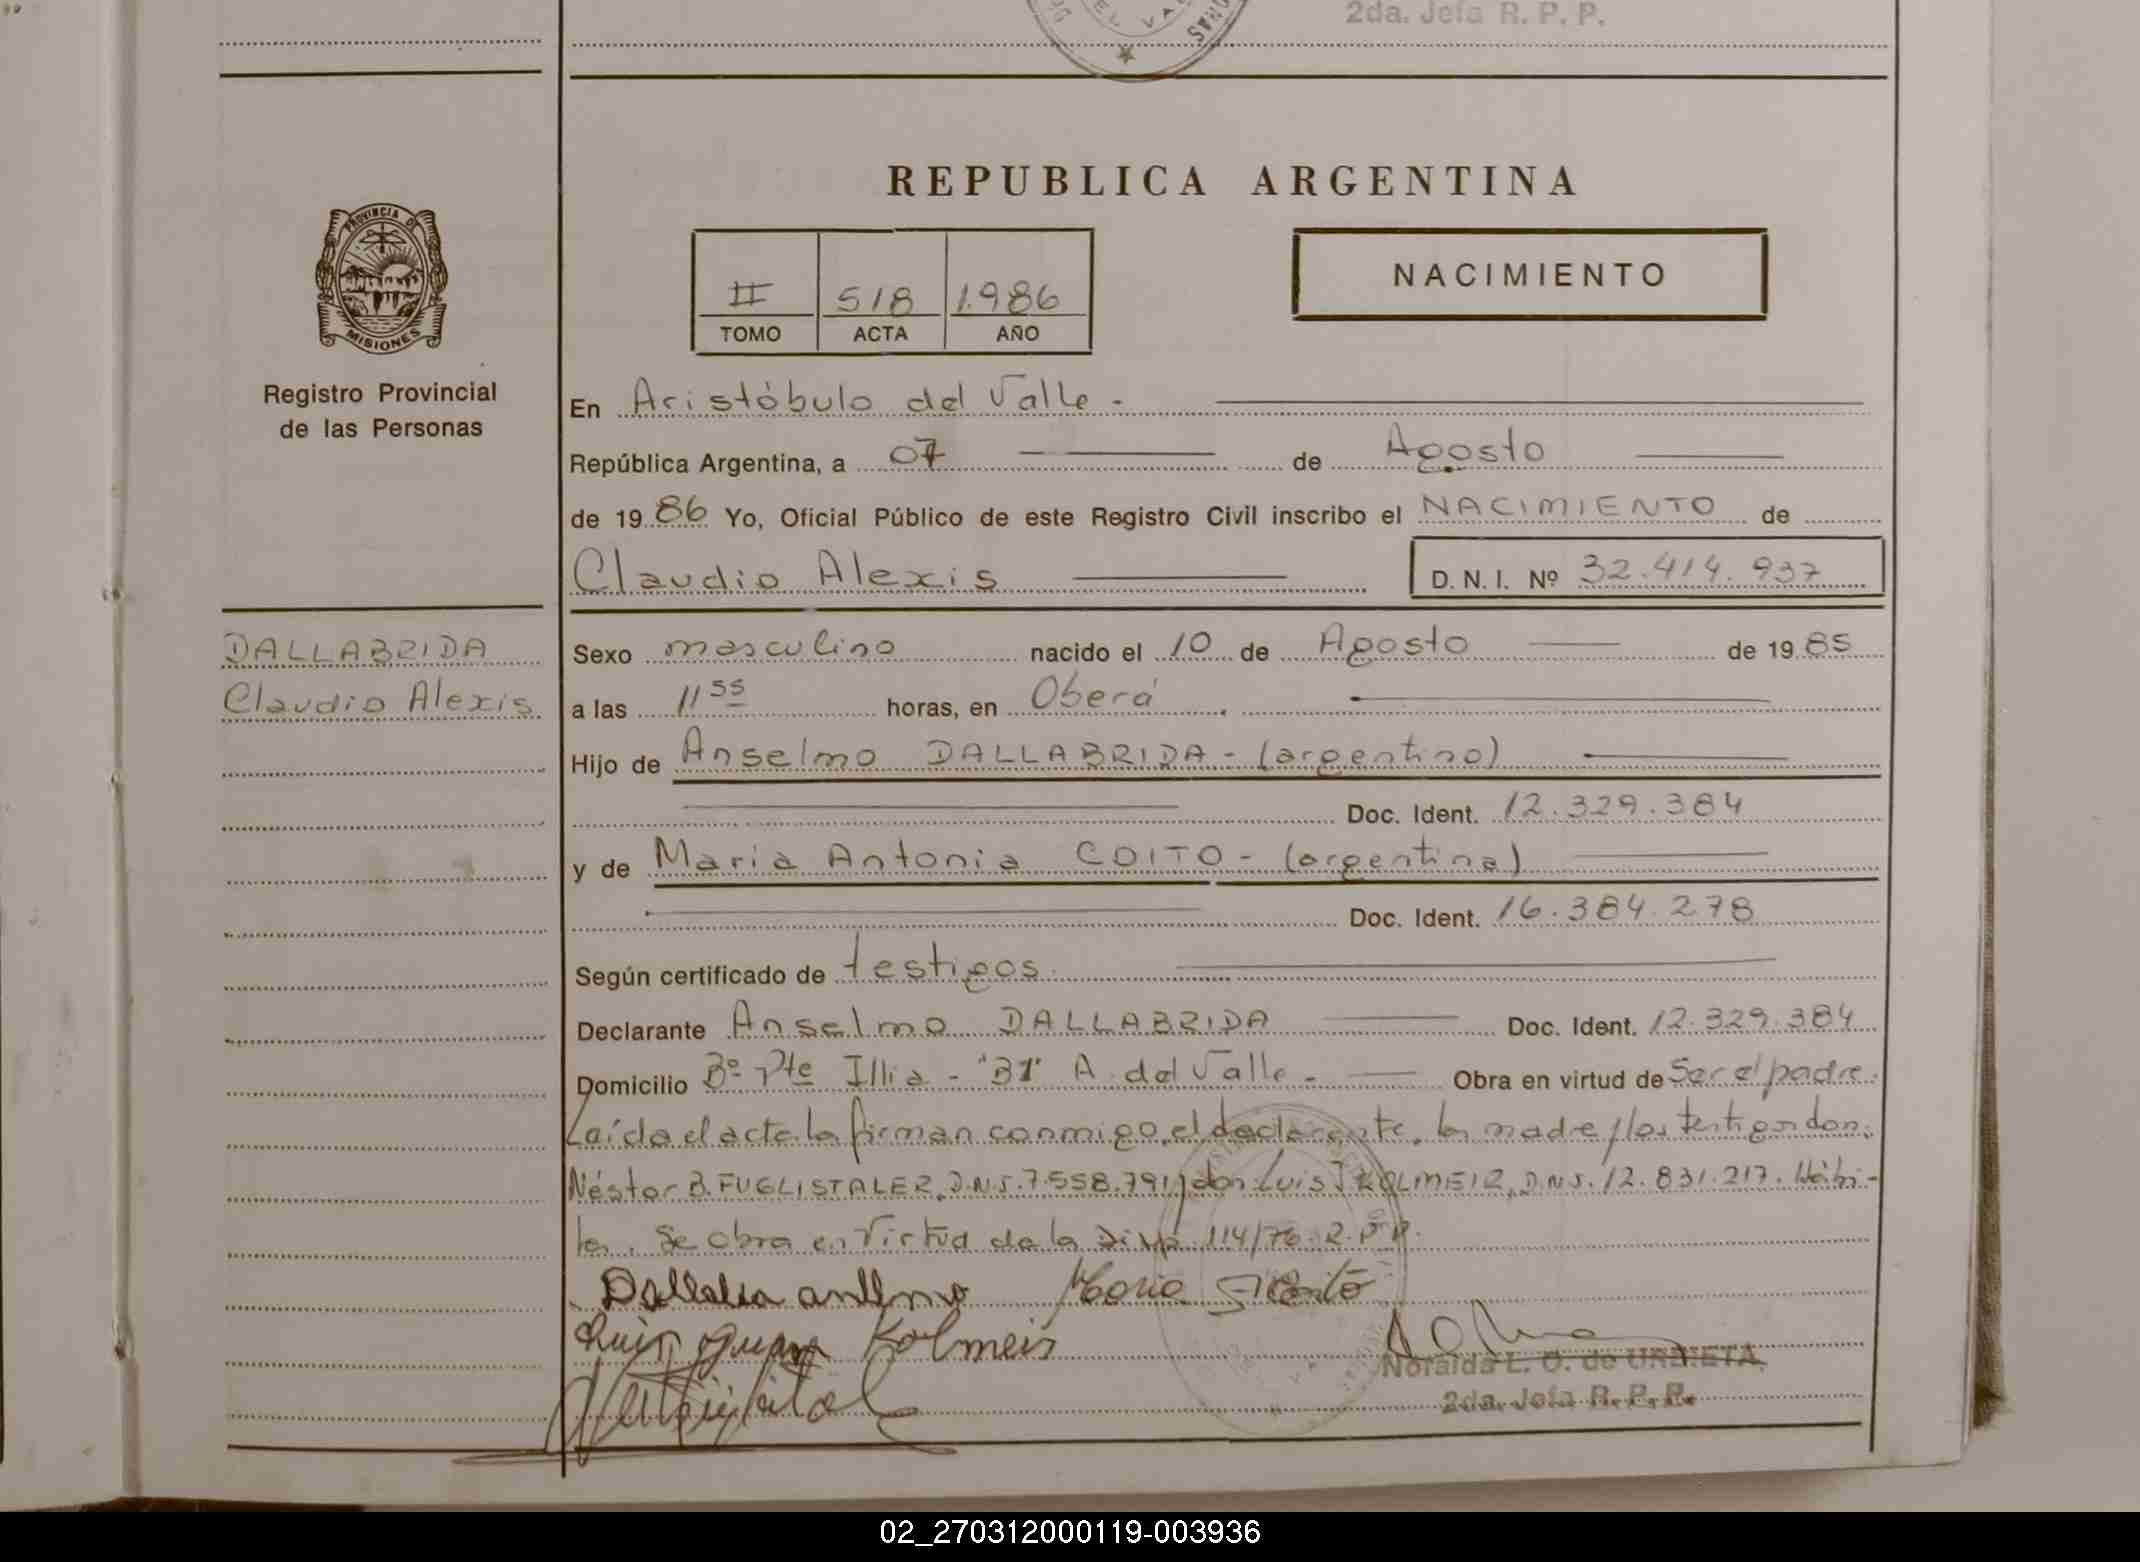 2da. Jefa R. P. P.
REPUBLICA ARGENTINA
PROVINCIA DE
MISIONES
Registro Provincial
de las Personas
II 518 1.986
TOMO ACTA AÑO
NACIMIENTO
En Aristóbulo del Valle -
República Argentina, a 07 de Agosto
de 19 86 Yo, Oficial Público de este Registro Civil inscribo el NACIMIENTO de
Claudio Alexis D. N. I. Nº 32.414.937
DALLABRIDA
Claudio Alexis
Sexo masculino nacido el 10 de Agosto de 19 85
a las 11 55 horas, en Oberá
Hijo de Anselmo DALLABRIDA - (argentino)
Doc. Ident. 12.329.384
y de Maria Antonia COITO - (argentina)
Doc. Ident. 16.384.278
Según certificado de testigos
Declarante Anselmo DALLABRIDA Doc. Ident. 12.329.384
Domicilio Bº Pte Illia - "B1" A. del Valle - Obra en virtud de Ser el padre.
Leída el acta la firman conmigo, el declarante, la madre y los testigos don
Néstor B. FUGLISTALER, D.N.I. 7.558.791 y don Luis J. KOLMEIR, D.N.I. 12.831.217. Hábi-
les. Se obra en Virtud de la Disp. 114/76. R.P.P.
Luis Juan Kolmeis
Noraida L. O. de URRIETA
2da. Jefa R. P. P.
02_270312000119-003936